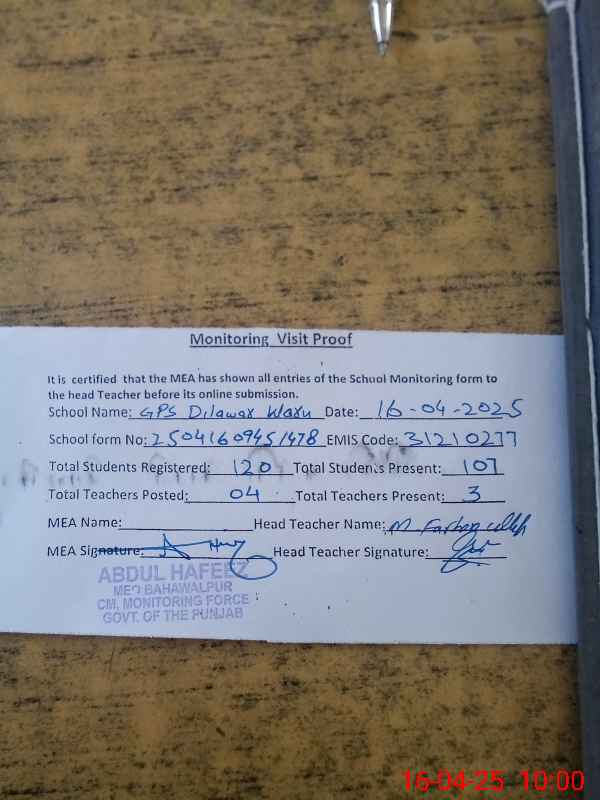 Monitoring Visit Proof
It is certified that the MEA has shown all entries of the School Monitoring form to
the head Teacher before its online submission.
School Name: GPS Dilawar Waru Date: 16-04-2025
School form No: 25041609451478 EMIS Code: 31210277
Total Students Registered: 120 Total Students Present: 107
Total Teachers Posted: 04 Total Teachers Present: 3
MEA Name: Head Teacher Name: M Farhan
MEA Signature: Head Teacher Signature:
ABDUL HAFEEZ
MEO BAHAWALPUR
CM, MONITORING FORCE
GOVT. OF THE PUNJAB
16-04-25 10:00